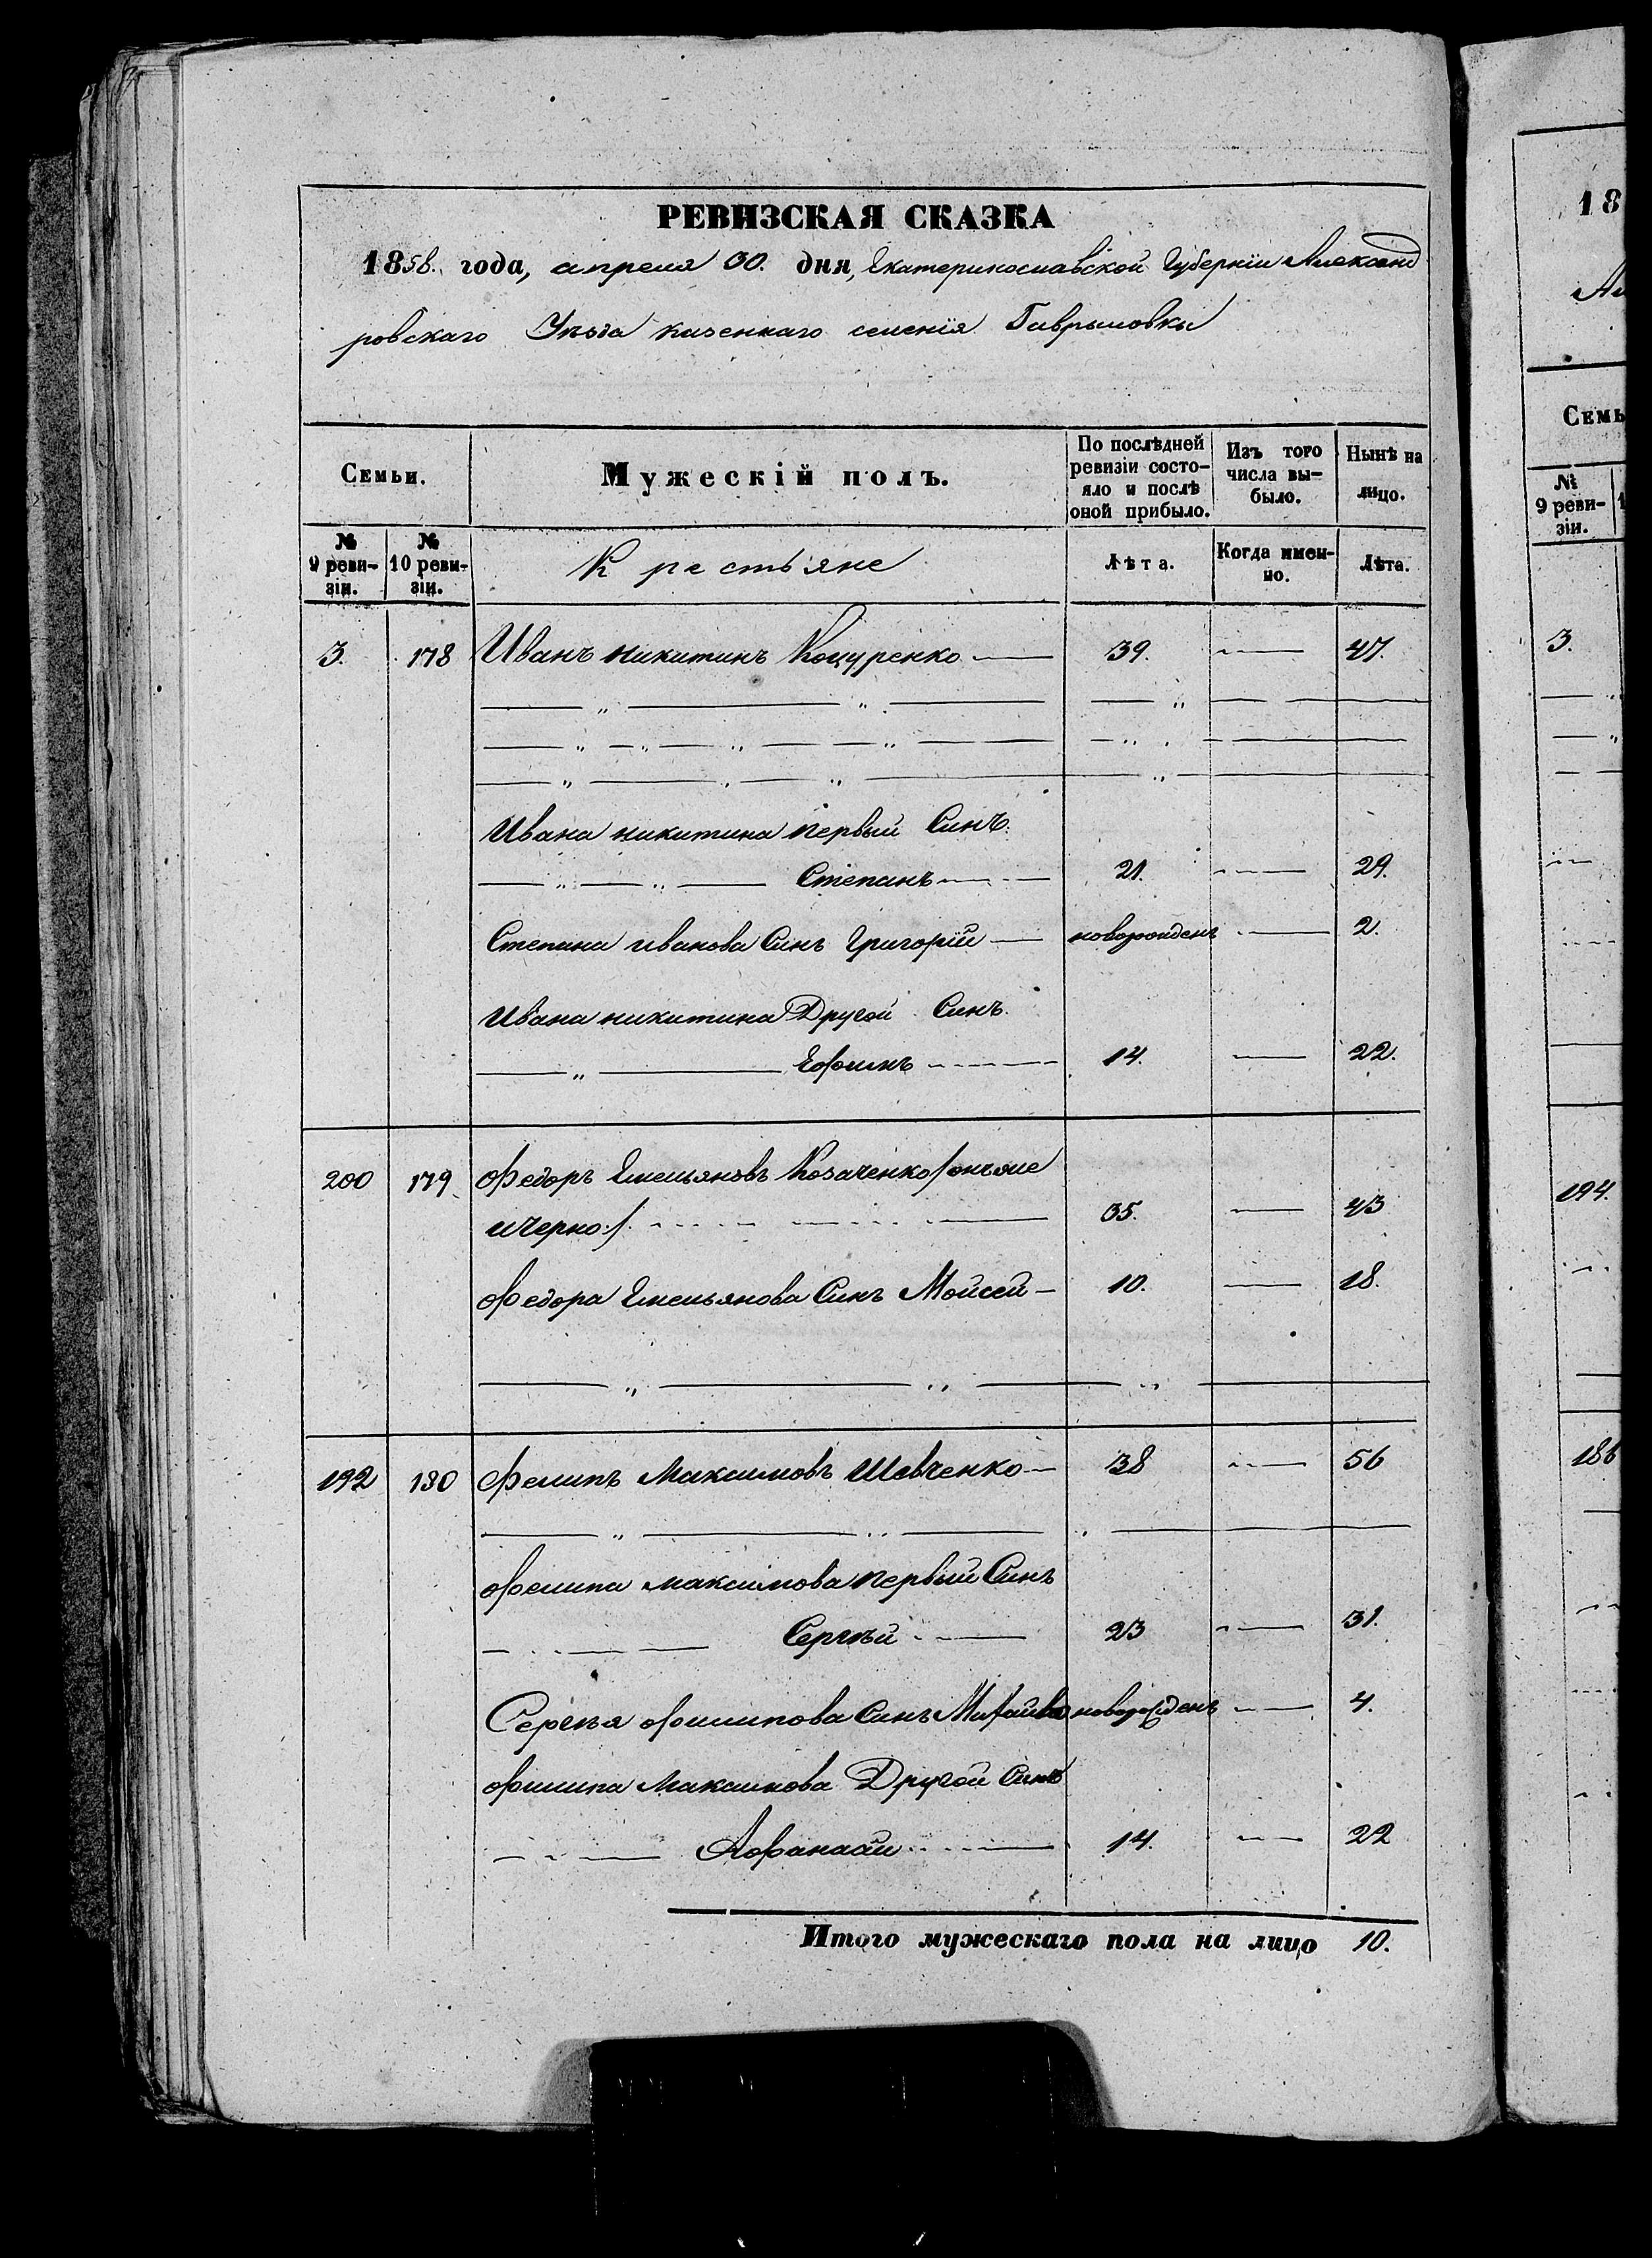 РЕВИЗСКАЯ СКАЗКА
1858. года, апреля 30. дня, Екатеринославской Губернїи Александ
ровскаго Уѣзда казеннаго селенїя Гаврыловки
Семьи.
Мужескій полъ.
По послѣдней ревизіи состо-
яло и послѣ оной прибыло.
Изъ того числа вы-
было.
Нынѣ на лицо.
№ 9 реви-
зіи.
№ 10 реви-
зіи.
Крестьяне
Лѣта.
Когда имен-
но.
Лѣта.
3. 178 Иванъ никитинъ Коцуренко 39. 47.
Ивана никитина первый Синъ.
Степанъ 21. 29.
Степана иванова Синъ Григорїй новорожденъ 2.
Ивана никитина Другой Синъ.
Ефимъ 14. 22.
200 179 Федоръ Емельяновъ Козаченко /онъже
ичерно/. 35. 43
Федора Емельянова Синъ Мойсей 10. 18.
192 180 Фелипъ Максимовъ Шевченко 38 56
Фелипа максимова первый Синъ
Сергѣй 23 31.
Сергѣя Филипова Синъ Михайло новорожденъ 4.
Филипа Максимова Другой Синъ
Афанасий 14. 22
Итого мужескаго пола на лицо 10.
18
Ал
Семь
№ 9 реви-
зіи.
3.
194.
186